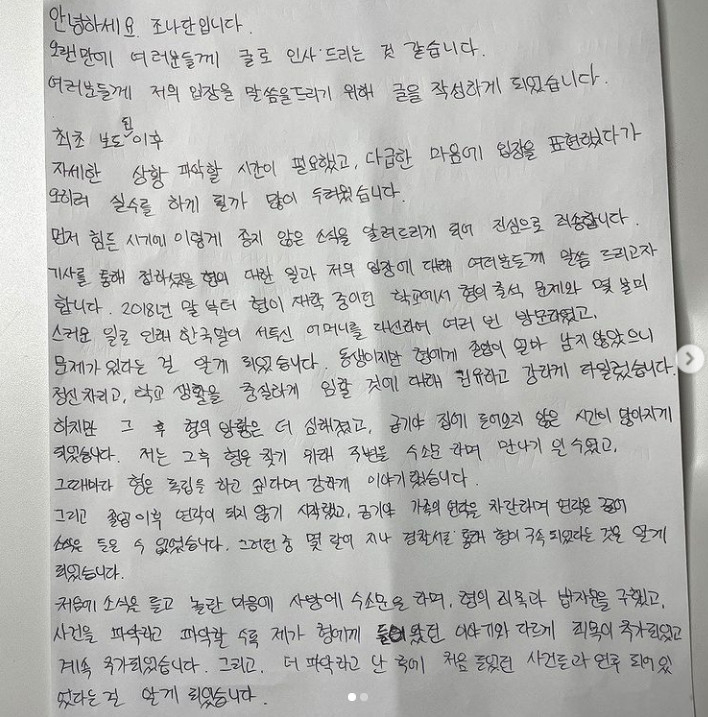 안녕하세요. 조나단입니다.
오랜만에 여러분들께 글로 인사 드리는 것 같습니다.
여러분들께 저의 입장을 말씀을드리기 위해 글을 작성하게 되었습니다.
최초 보도된 이후
자세한 상황 파악할 시간이 필요했고, 다급한 마음에 입장을 표현했다가
오히려 실수를 하게 될까 많이 두려웠습니다.
먼저 힘든 시기에 이렇게 좋지 않은 소식을 알려드리게 되어 진심으로 죄송합니다.
기사를 통해 접하셨을 형의 대한 일과 저의 입장에 대해 여러분들께 말씀 드리고자
합니다. 2018년 말 부터 형이 재학 중이던 학교에서 형의 출석 문제와 몇 불미
스러운 일로 인해 한국말이 서투신 어머니를 대신하여 여러 번 방문하였고,
문제가 있다는 걸 알게 되었습니다. 동생이지만 형에게 졸업이 얼마 남지 않았으니
정신차리고, 학교 생활을 충실하게 임할 것에 대해 권유하고 강하게 타일렀습니다.
하지만 그 후 형의 방황은 더 심해졌고, 급기야 집에 들어오지 않은 시간이 많아지게
되었습니다. 저는 그후 형을 찾기 위해 주변을 수소문 하며 만나기 일 수였고,
그때마다 형은 독립을 하고 싶다며 강하게 이야기 했습니다.
그리고 졸업 이후 연락이 되지 않기 시작했고, 급기야 가족의 연락을 차단하며 연락은
소식은 들을 수 없었습니다. 그러던 중 몇 달이 지나 경찰서를 통해 형이 구속 되었다는 것을 알게
되었습니다.
처음에 소식을 듣고 놀란 마음에 사방에 수소문을 하며, 형의 죄목과 반자문을 구했고,
사건을 파악하고 파악할 수록 제가 형에게 들어 왔던 이야기와 다르게 죄목이 추가되었고
계속 추가되었습니다. 그리고, 더 파악하고 난 후에 처음 들었던 사건들과 연루 되어 있
었다는 걸 알게 되었습니다.